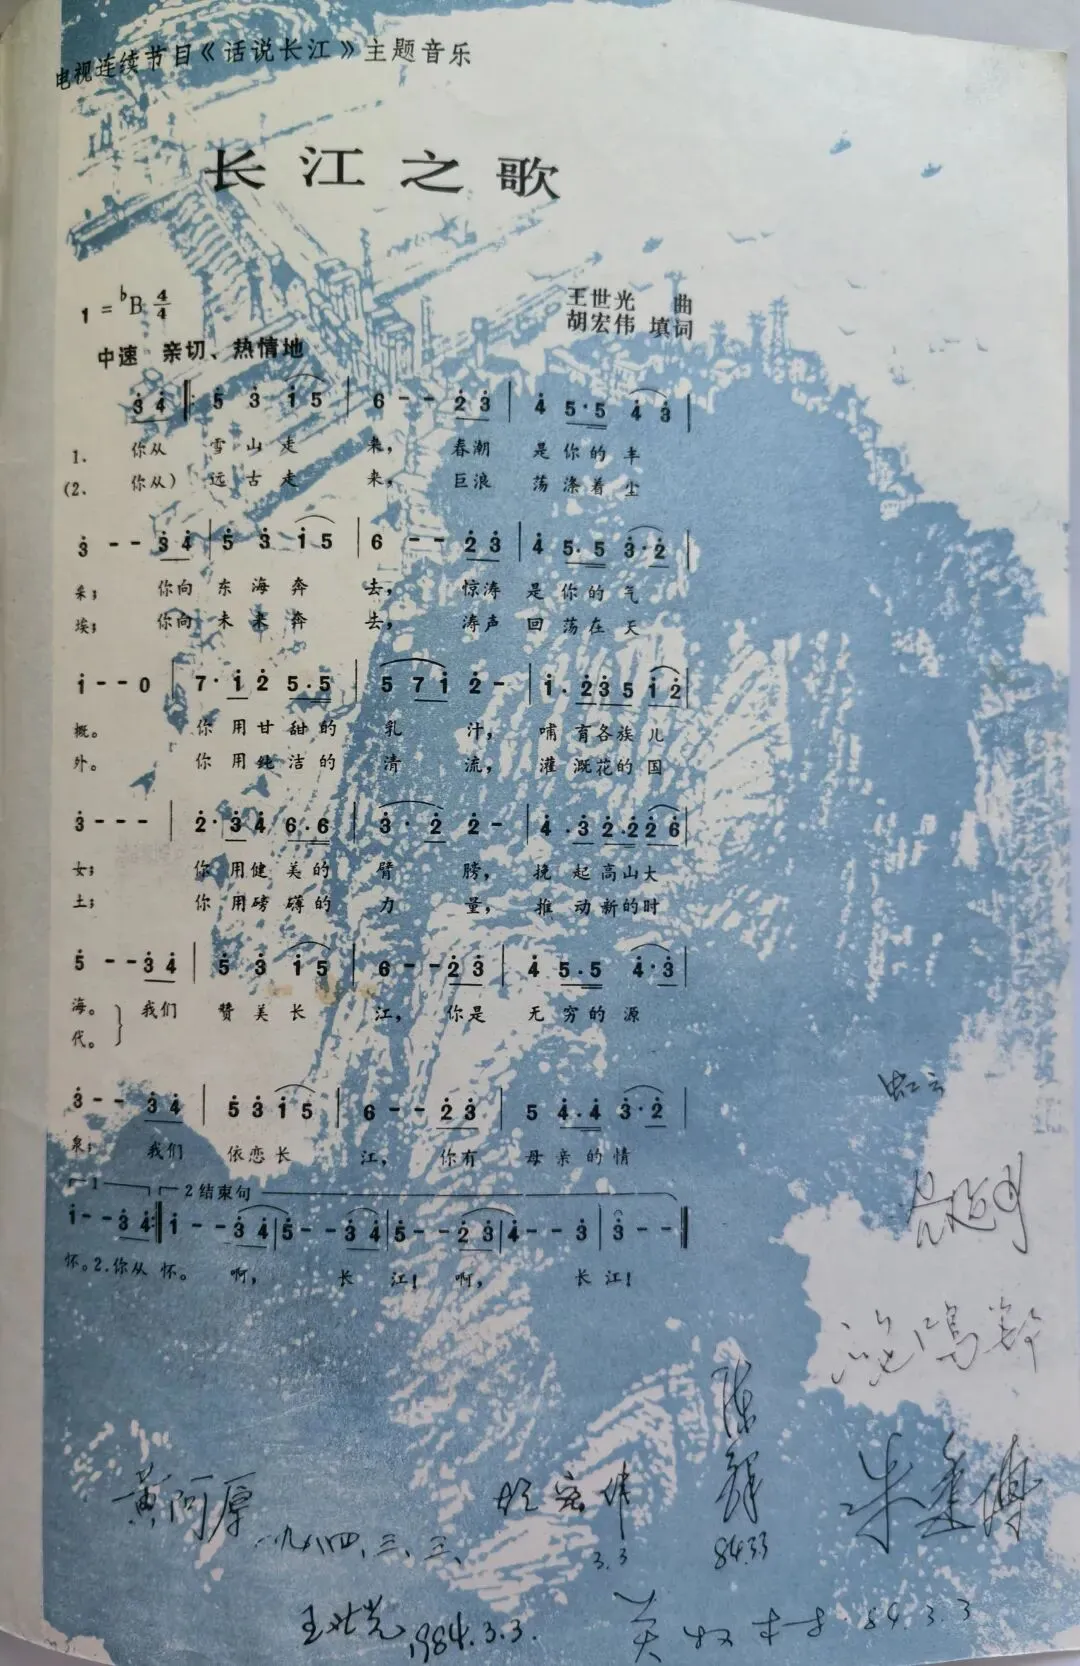 电视连续节目《话说长江》主题音乐
长江之歌
1 = ♭B 4/4
王世光 曲
胡宏伟 填词
中速 亲切、热情地
3 4 ‖: 5 3 1 5 | 6 - - 2 3 | 4 5·5 4 3 |
1. 你从 雪山走 来, 春潮 是你的丰
(2. 你从) 远古走 来, 巨浪 荡涤着尘
3 - - 3 4 | 5 3 1 5 | 6 - - 2 3 | 4 5·5 3·2 |
采; 你向 东海奔 去, 惊涛 是你的气
埃; 你向 未来奔 去, 涛声 回荡在天
1 - - 0 | 7·1 2 5·5 | 5 7 1 2 - | 1·2 3 5 1 2 |
概。 你用甘甜的 乳 汁, 哺育各族儿
外。 你用纯洁的 清 流, 灌溉花的国
3 - - - | 2·3 4 6·6 | 3·2 2 - | 4·3 2·2 2 6 |
女; 你用健美的 臂 膀, 挽起高山大
土; 你用磅礴的 力 量, 推动新的时
5 - - 3 4 | 5 3 1 5 | 6 - - 2 3 | 4 5·5 4·3 |
海。 我们 赞美长 江, 你是 无穷的源
代。
3 - - 3 4 | 5 3 1 5 | 6 - - 2 3 | 5 4·4 3·2 |
泉; 我们 依恋长 江, 你有 母亲的情
1 2 结束句
1 - - 3 4 :‖ 1 - - 3 4 | 5 - - 3 4 | 5 - - 2 3 | 4 - - 3 | 3 - - ‖
怀。2.你从 怀。 啊, 长 江! 啊, 长江!
虹云
陈铎
84.3.3
黄阿原
一九八四、三、三、
胡宏伟
3.3
王世光 1984.3.3.
84.3.3